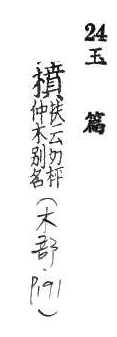 24 玉篇
橨 扶云切枰
仲木别名(木部·P.191)